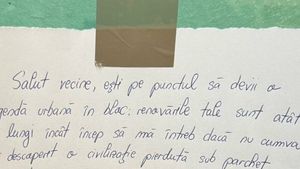 Salut vecine, ești pe punctul să devii o
gendă urbană în bloc; renovările tale sunt atât
lungi încât încep să mă întreb dacă nu cumva
descoperit o civilizație pierdută sub parchet